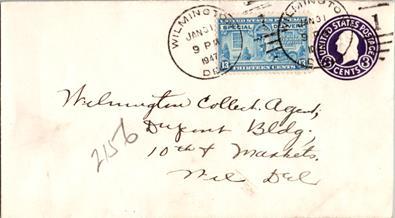 WILMINGTON
JAN 31
9 PM
1947
DEL
SPECIAL DELIVERY
13 THIRTEEN CENTS 13
WILMINGTON
UNITED STATES POSTAGE
3 CENTS 3
Wilmington Collect. Agent,
Dupont Bldg,
10th & Markets.
Wil Del
2156